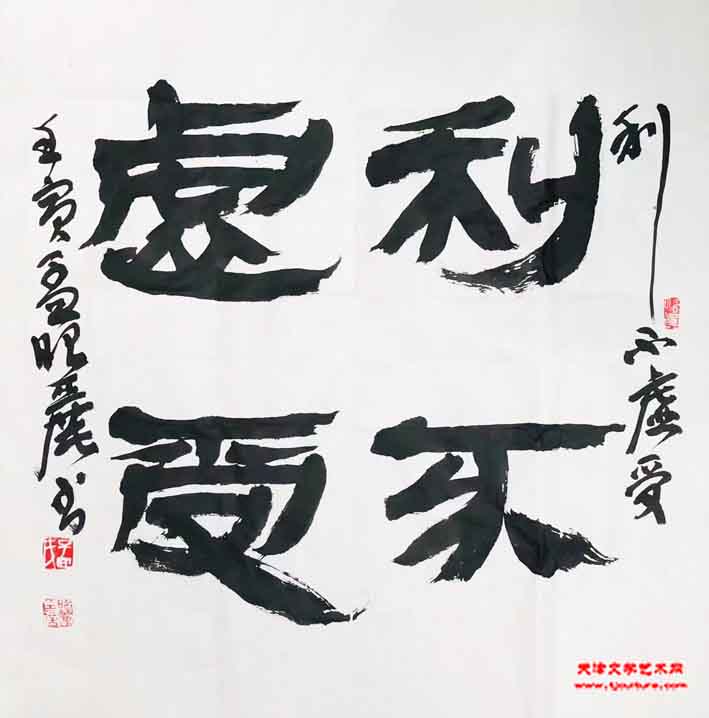 利不虚受
利不
虚受
壬寅孟昭麗书
天津文学艺术网